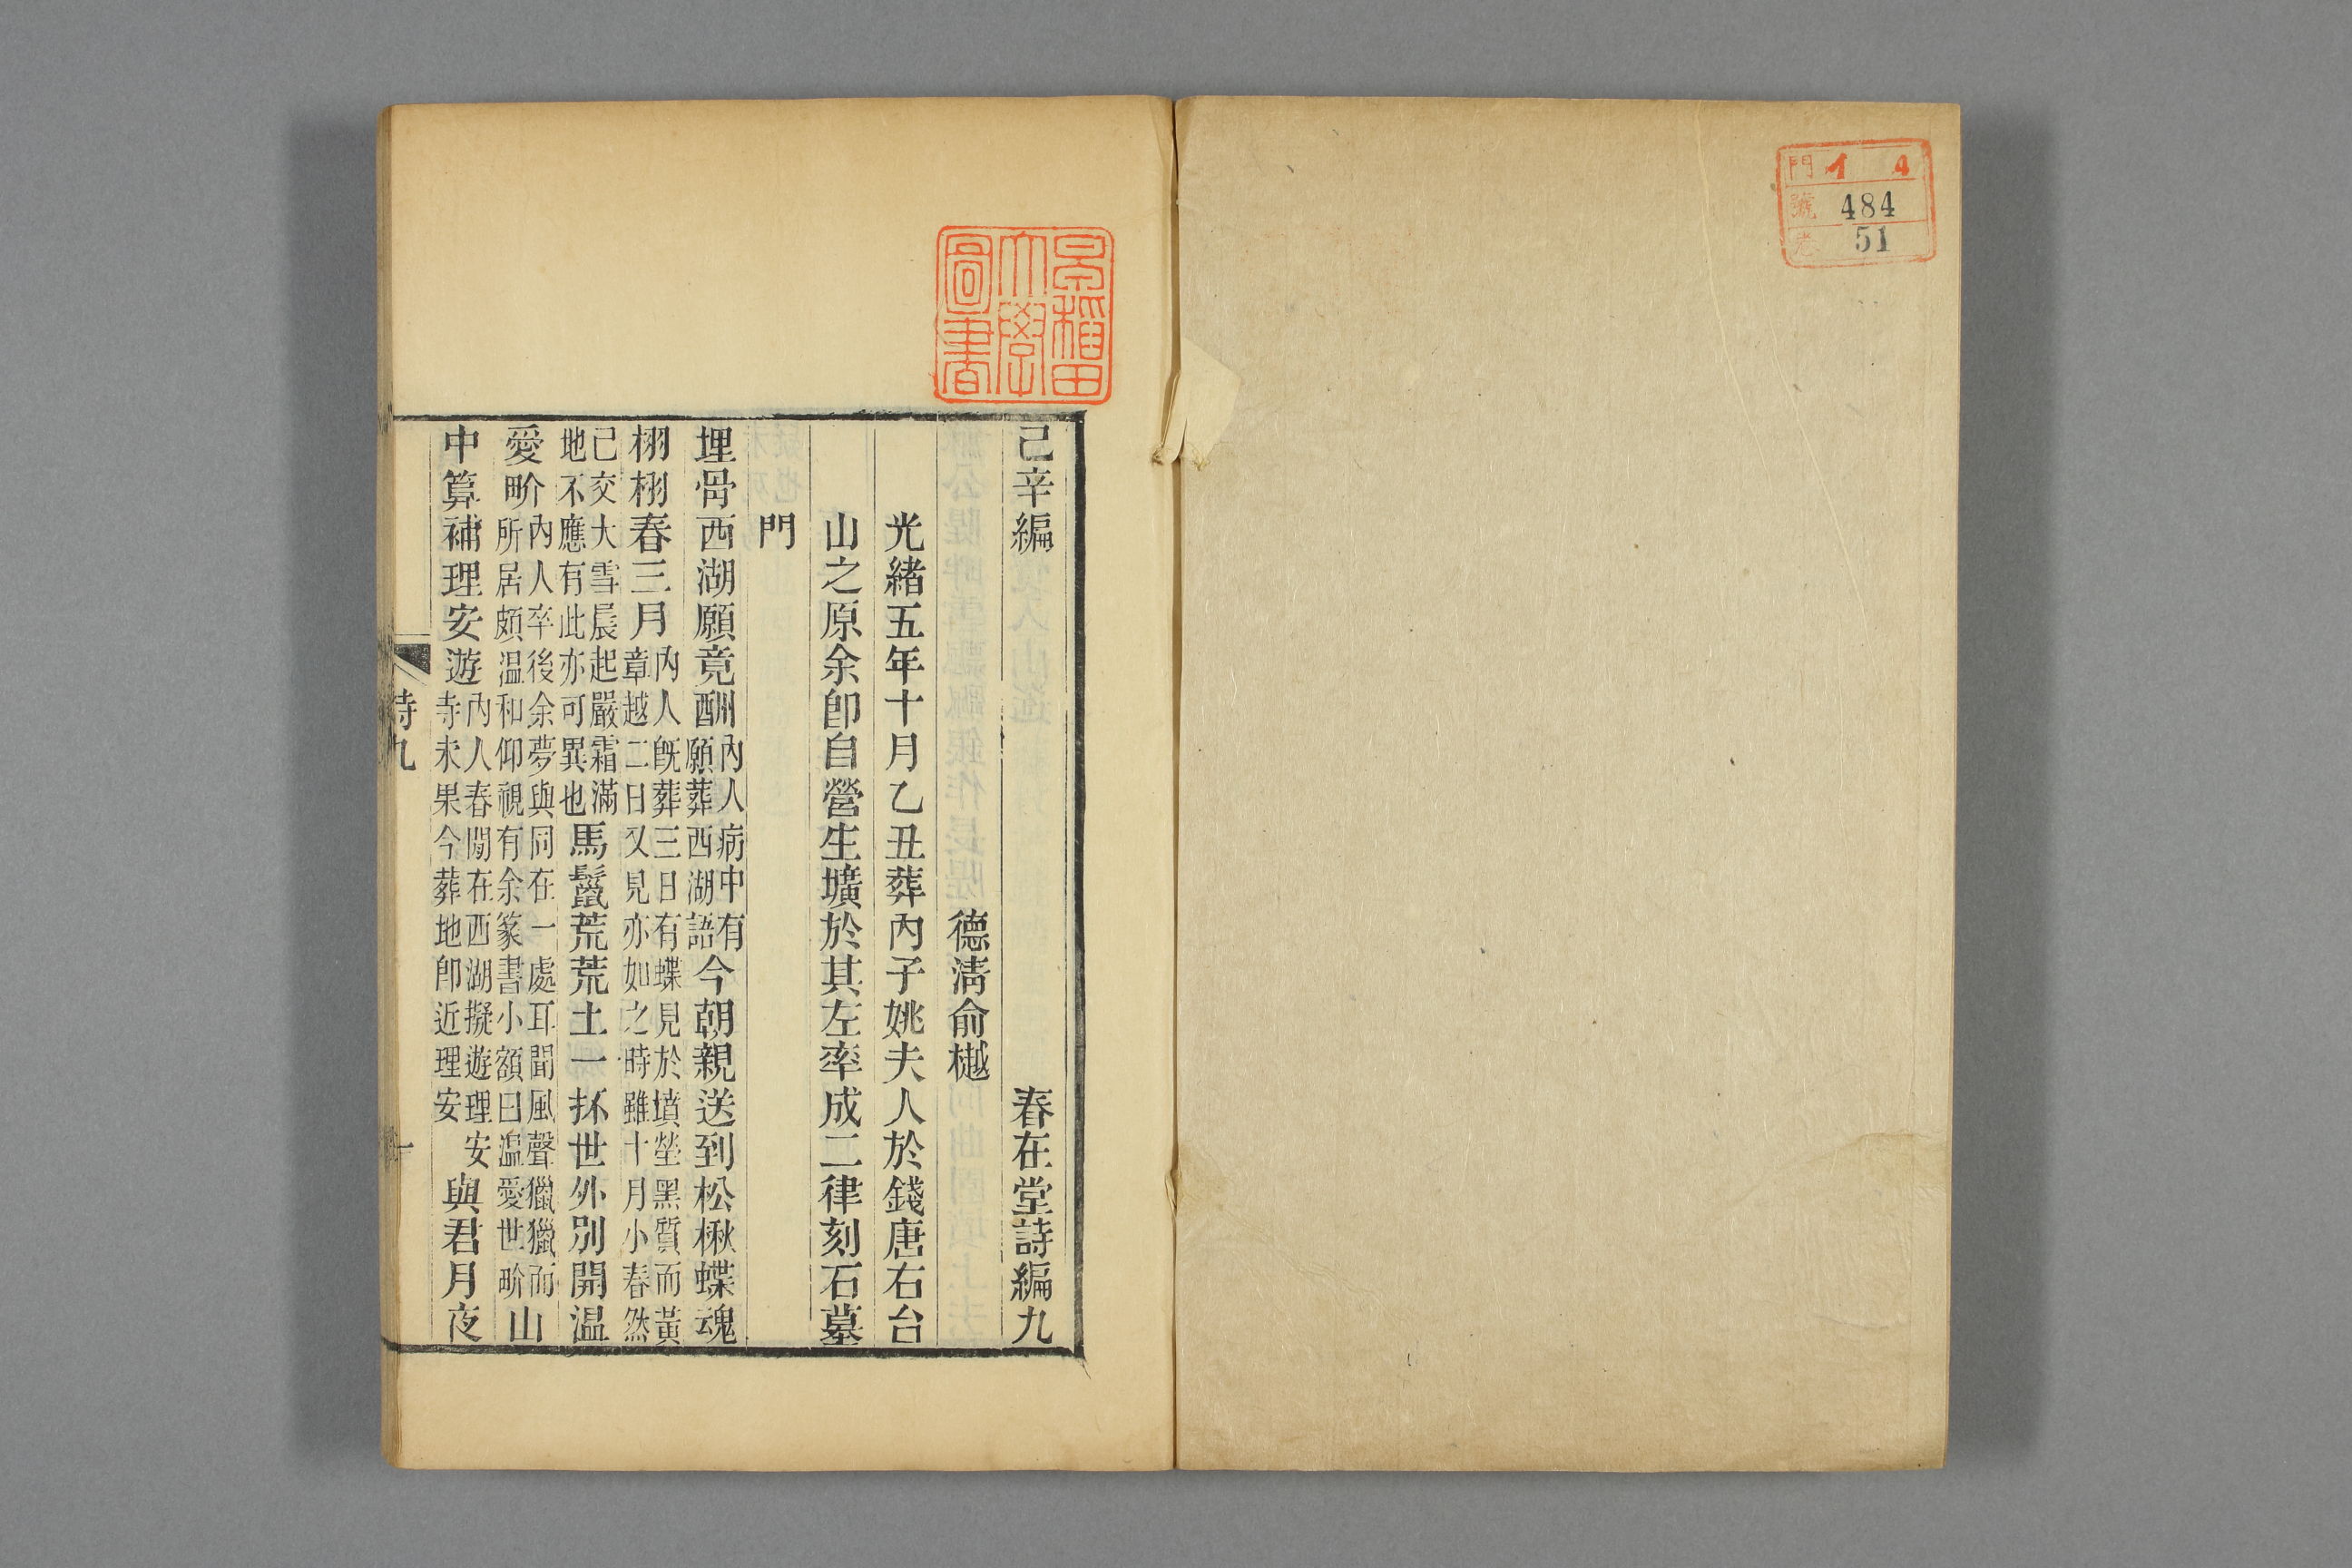 門 イ 4
號 484
51
早稲田
大學
圖書
己辛編 春在堂詩編九
德清俞樾
光緒五年十月乙丑葬內子姚夫人於錢唐右台
山之原余卽自營生壙於其左率成二律刻石墓
門
埋骨西湖願竟酬內人病中有願葬西湖語今朝親送到松楸蝶魂
栩栩春三月內人旣葬三日有蝶見於墳塋黑質而黃章越二日又見亦如之時雖十月小春然
已交大雪晨起嚴霜滿地不應有此亦可異也馬鬣荒荒土一抔世外別開温
愛畍內人卒後余夢與同在一處耳聞風聲獵獵而所居頗温和仰視有余篆書小額曰温愛世畍山
中算補理安遊內人春閒在西湖擬遊理安寺未果今葬地卽近理安與君月夜
詩九
一